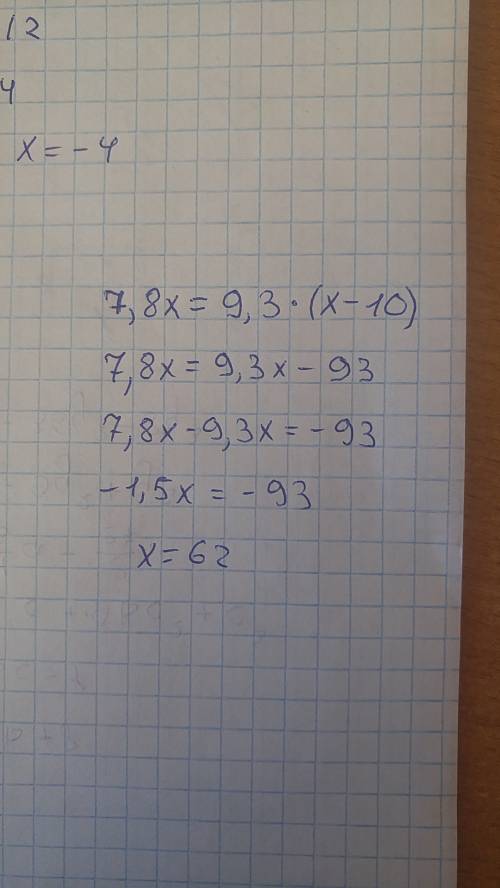 12
4
x = - 4
7,8x = 9,3 · (x - 10)
7,8x = 9,3x - 93
7,8x - 9,3x = - 93
- 1,5x = - 93
x = 62